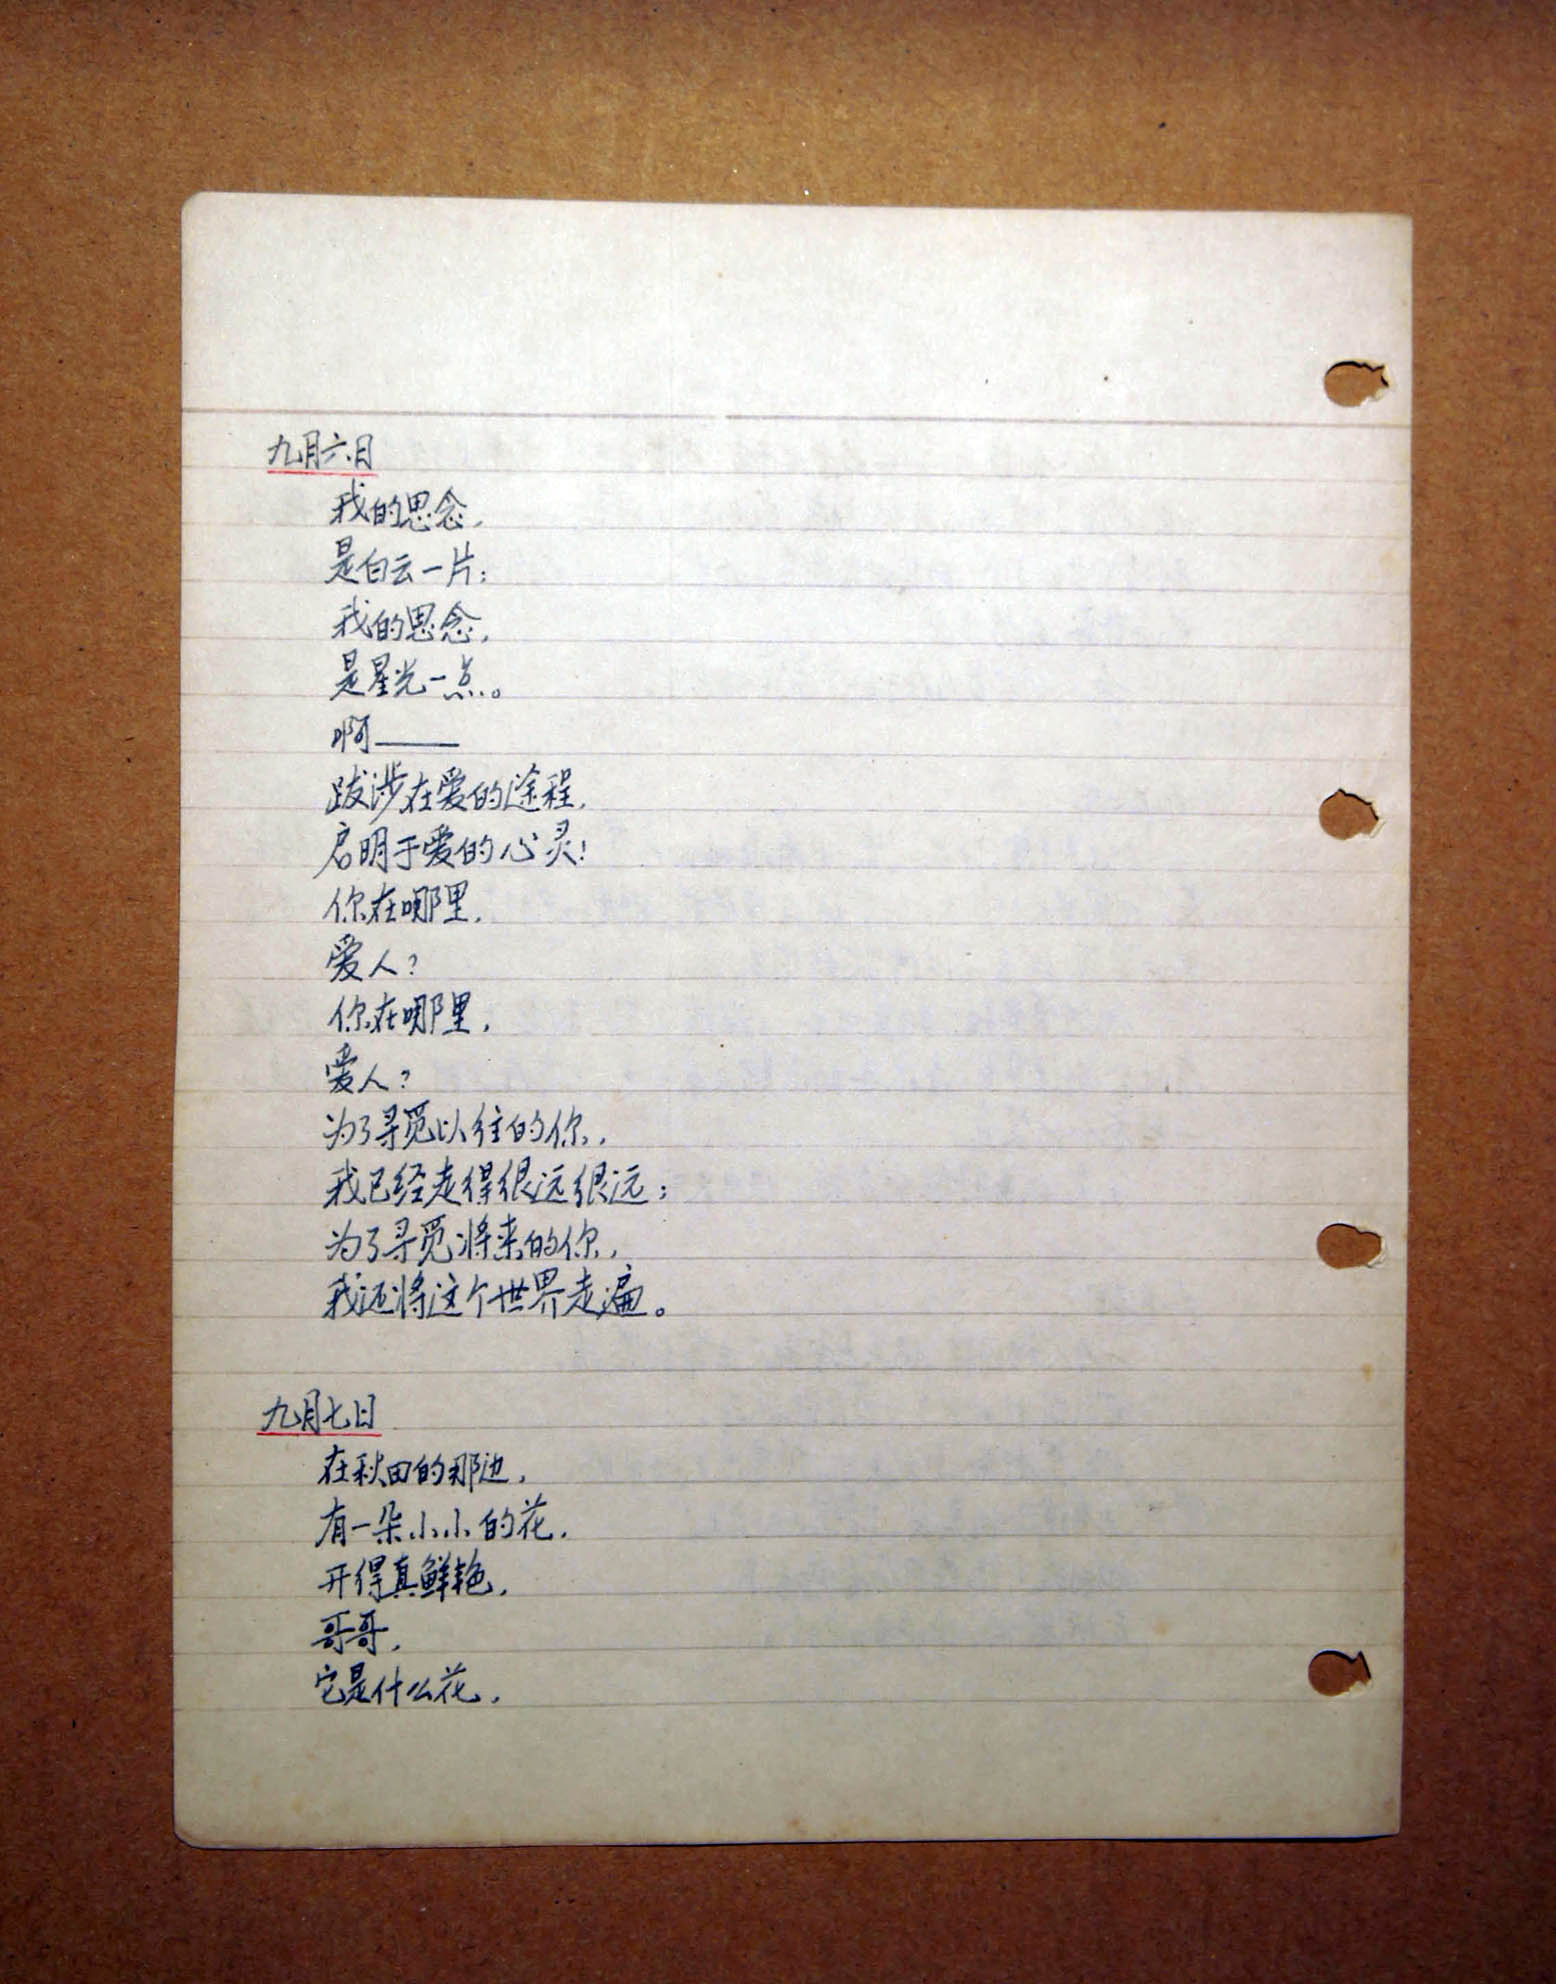 九月六日
我的思念，
是白云一片；
我的思念，
是星光一点。
啊——
跋涉在爱的途程，
启明于爱的心灵！
你在哪里，
爱人？
你在哪里，
爱人？
为了寻觅以往的你，
我已经走得很远很远；
为了寻觅将来的你，
我还将这个世界走遍。
九月七日
在秋田的那边，
有一朵小小的花，
开得真鲜艳，
哥哥，
它是什么花，